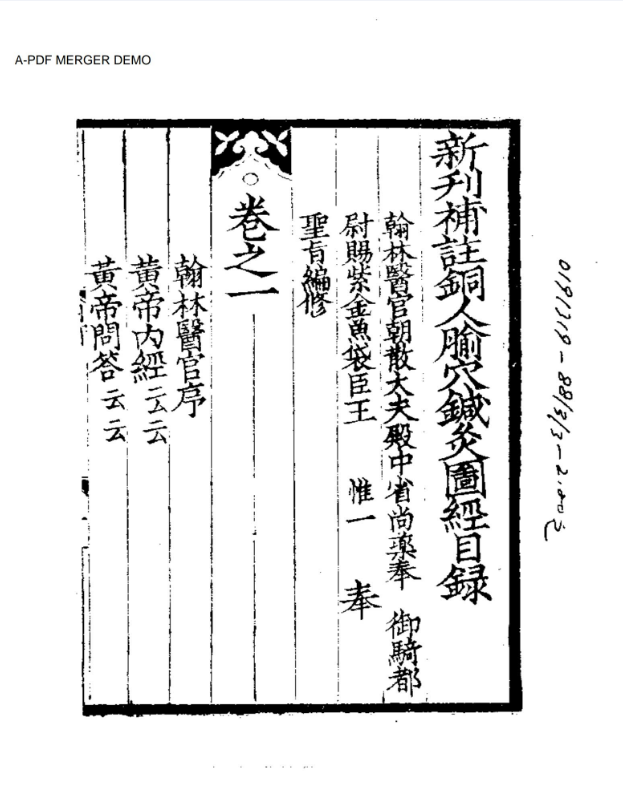 A-PDF MERGER DEMO
新刋補註銅人腧穴鍼灸圖經目録
翰林醫官朝散大夫殿中省尚藥奉 御騎都
尉賜紫金魚袋臣王 惟一 奉
聖旨編修
卷之一
翰林醫官序
黃帝內經云云
黃帝問答云云